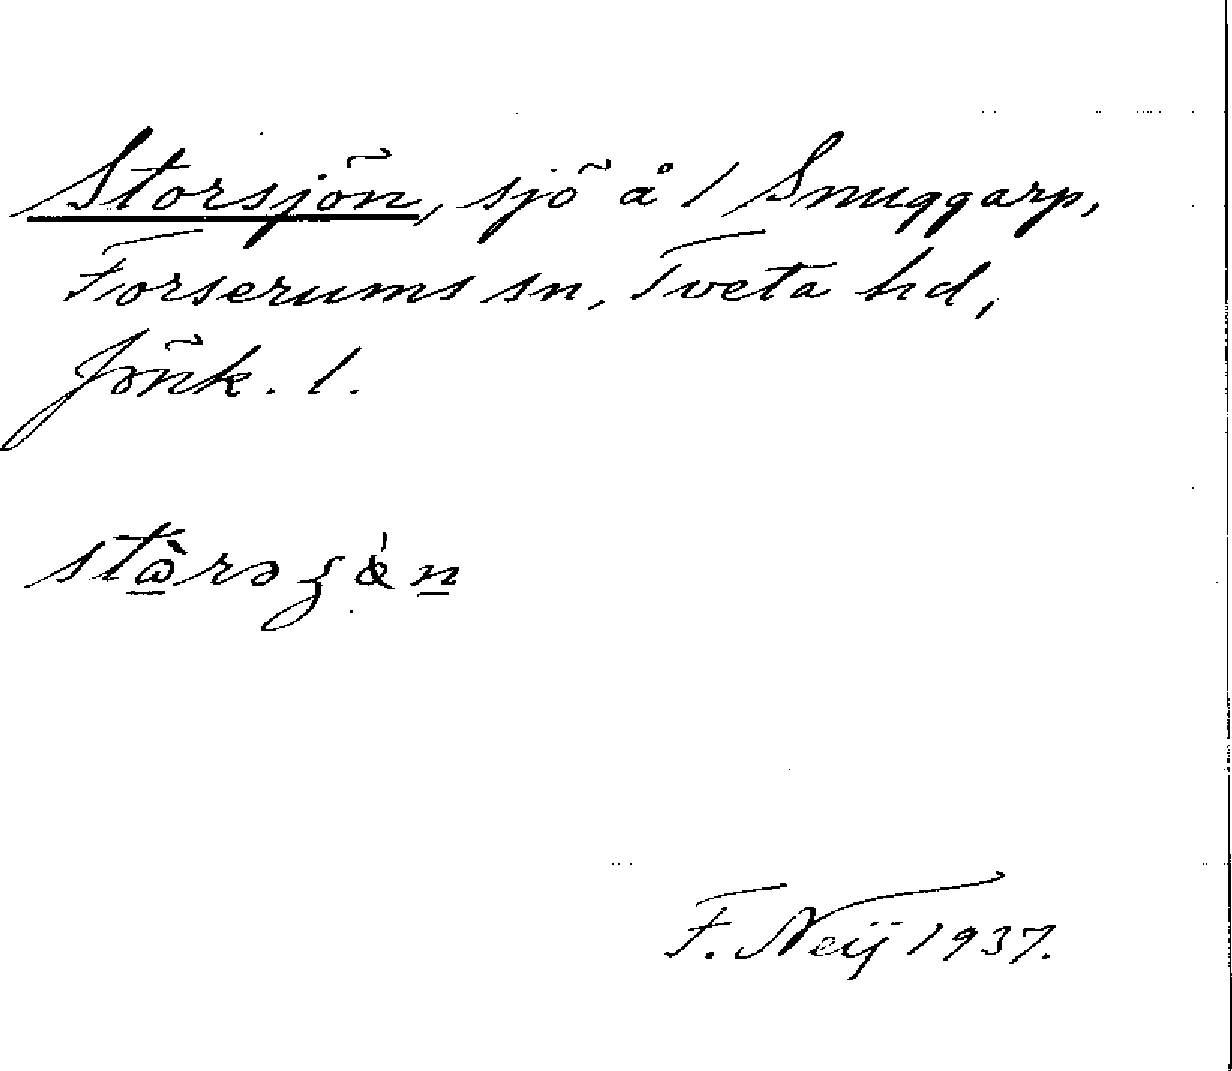 Storsjön, sjö å 1 Snuggarp,
Forserums sn, Tveta hd,
Jönk. l.
F. Neij 1937.